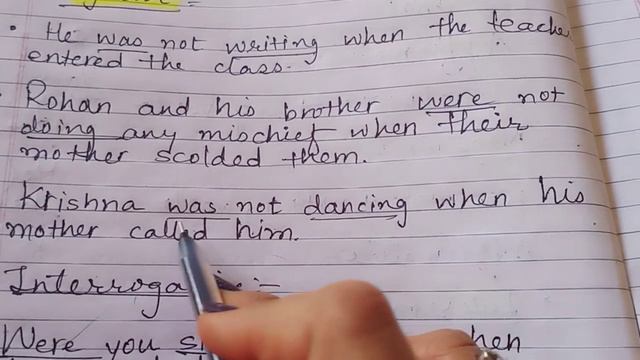 He was not writing when the teache
entered the class.
Rohan and his brother were not
doing any mischief when their
mother scolded them.
Krishna was not dancing when his
mother called him.
Were you